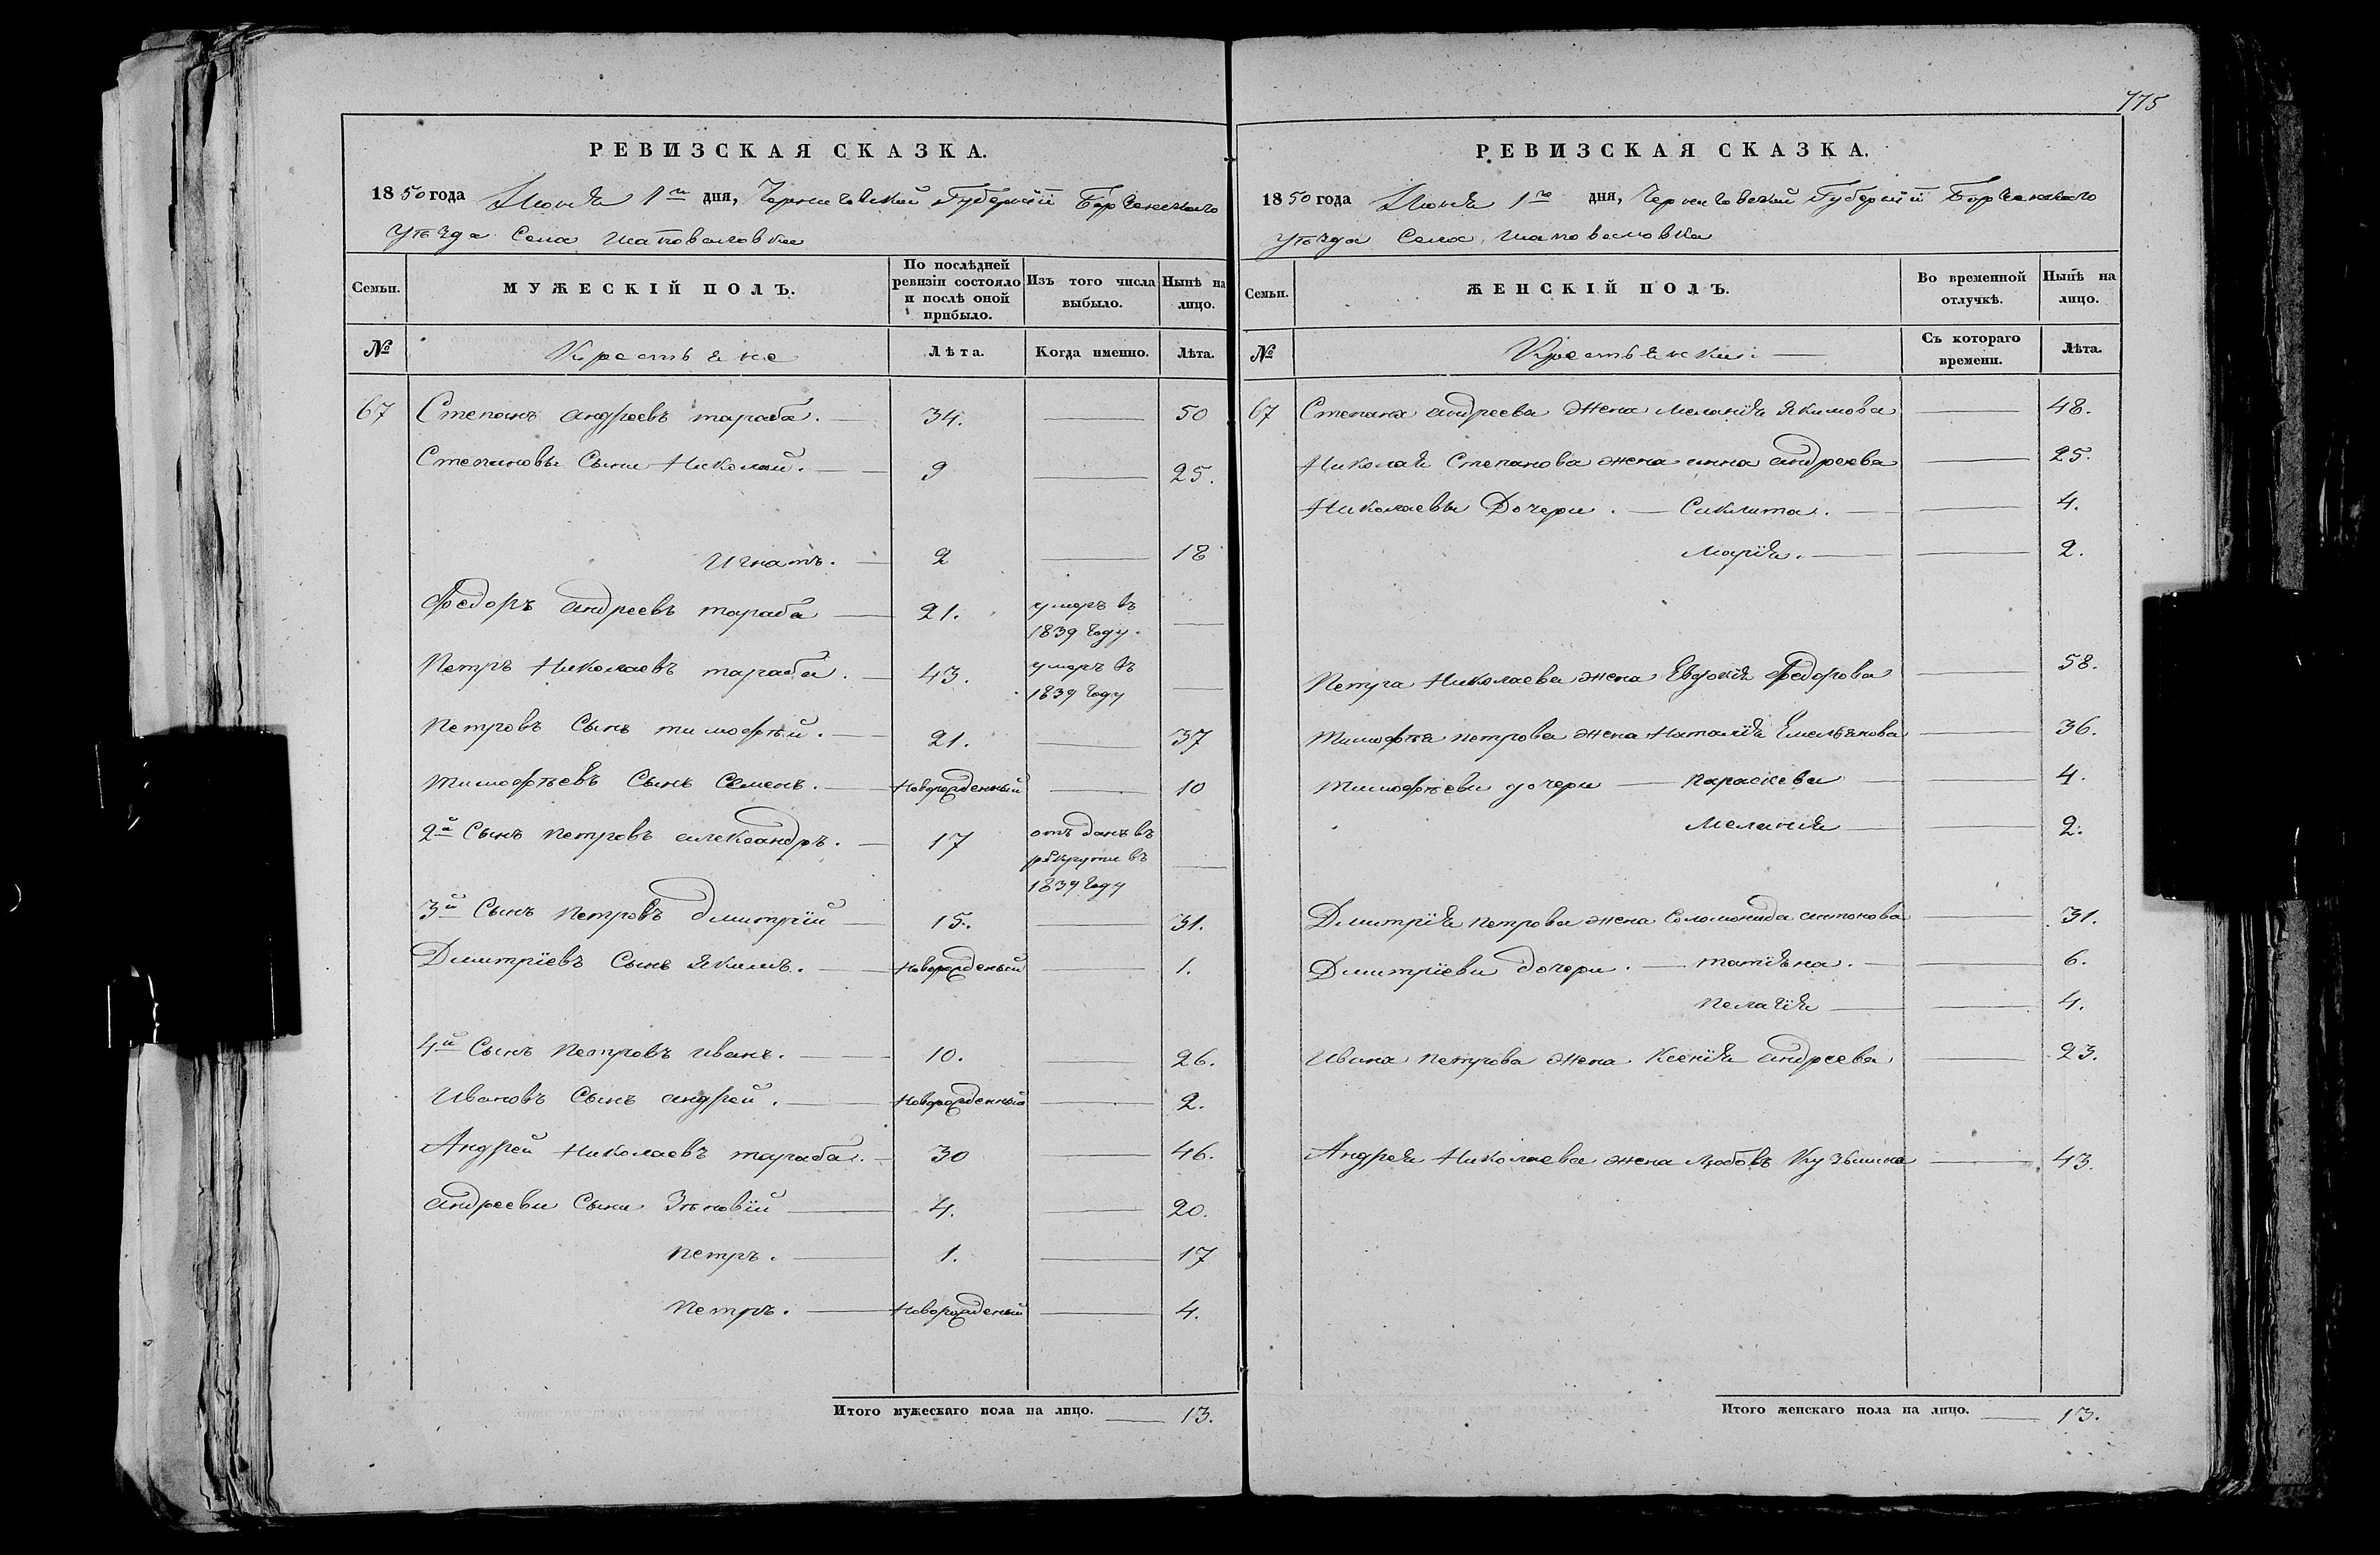 775
РЕВИЗСКАЯ СКАЗКА.
1850 года Июня 1го дня, Черниговской Губерніи Борзенскаго
уѣзда Села Шаповаловки
Семьи. МУЖЕСКІЙ ПОЛЪ. По послѣдней ревизіи состояло и послѣ оной прибыло. Изъ того числа выбыло. Нынѣ на лицо.
№ Крестьяне Лѣта. Когда именно. Лѣта.
67 Степанъ андреевъ тараба. 34. 50
Степановы Сыни Николай. 9 25.
Игнатъ. 2 18
Федоръ андреевъ тараба 21. умеръ въ 1839 году.
Петръ Николаевъ тараба. 43. умеръ въ 1839 году
Петровъ Сынъ тимофѣй. 21. 37
Тимофѣевъ Сынъ Семенъ. Новорожденный 10
2й Сынъ Петровъ александръ. 17 отъданъ въ рекруты въ 1839 году
3й Сынъ Петровъ дмитрій 15. 31.
Дмитріевъ Сынъ Якимъ. Новорожденый 1.
4й Сынъ Петровъ иванъ. 10. 26.
Ивановъ Сынъ андрей. Новорожденный 2.
Андрей Николаевъ тараба. 30 46.
андреевы Сыни Зѣновій 4. 20.
Петръ. 1. 17
Петръ. Новорожденый 4.
Итого мужескаго пола на лицо. 13.
РЕВИЗСКАЯ СКАЗКА.
1850 года Июня 1го дня, Черниговской Губерніи Борзенскаго
уѣзда Села Шаповаловки
Семьи. ЖЕНСКІЙ ПОЛЪ. Во временной отлучкѣ. Нынѣ на лицо.
№ Крестьянки Съ котораго времени. Лѣта.
67 Степана андреева жена Меланія Якимова 48.
Николая Степанова жена анна андреева 25.
Николаевы Дочери. Сиклита. 4.
Марія. 2.
Петра Николаева жена Евдокія Федорова 58.
Тимофѣя петрова жена Наталія Емельянова 36.
Тимофѣевы дочери Параскева 4.
Меланія 2.
Дмитрія петрова жена Соломонида антонова 31.
Дмитріевы дочери. татіяна. 6.
Пелагія 4.
Ивана петрова жена Ксенія андреева 23.
Андрея Николаева жена любовъ Кузьмина 43.
Итого женскаго пола на лицо. 13.